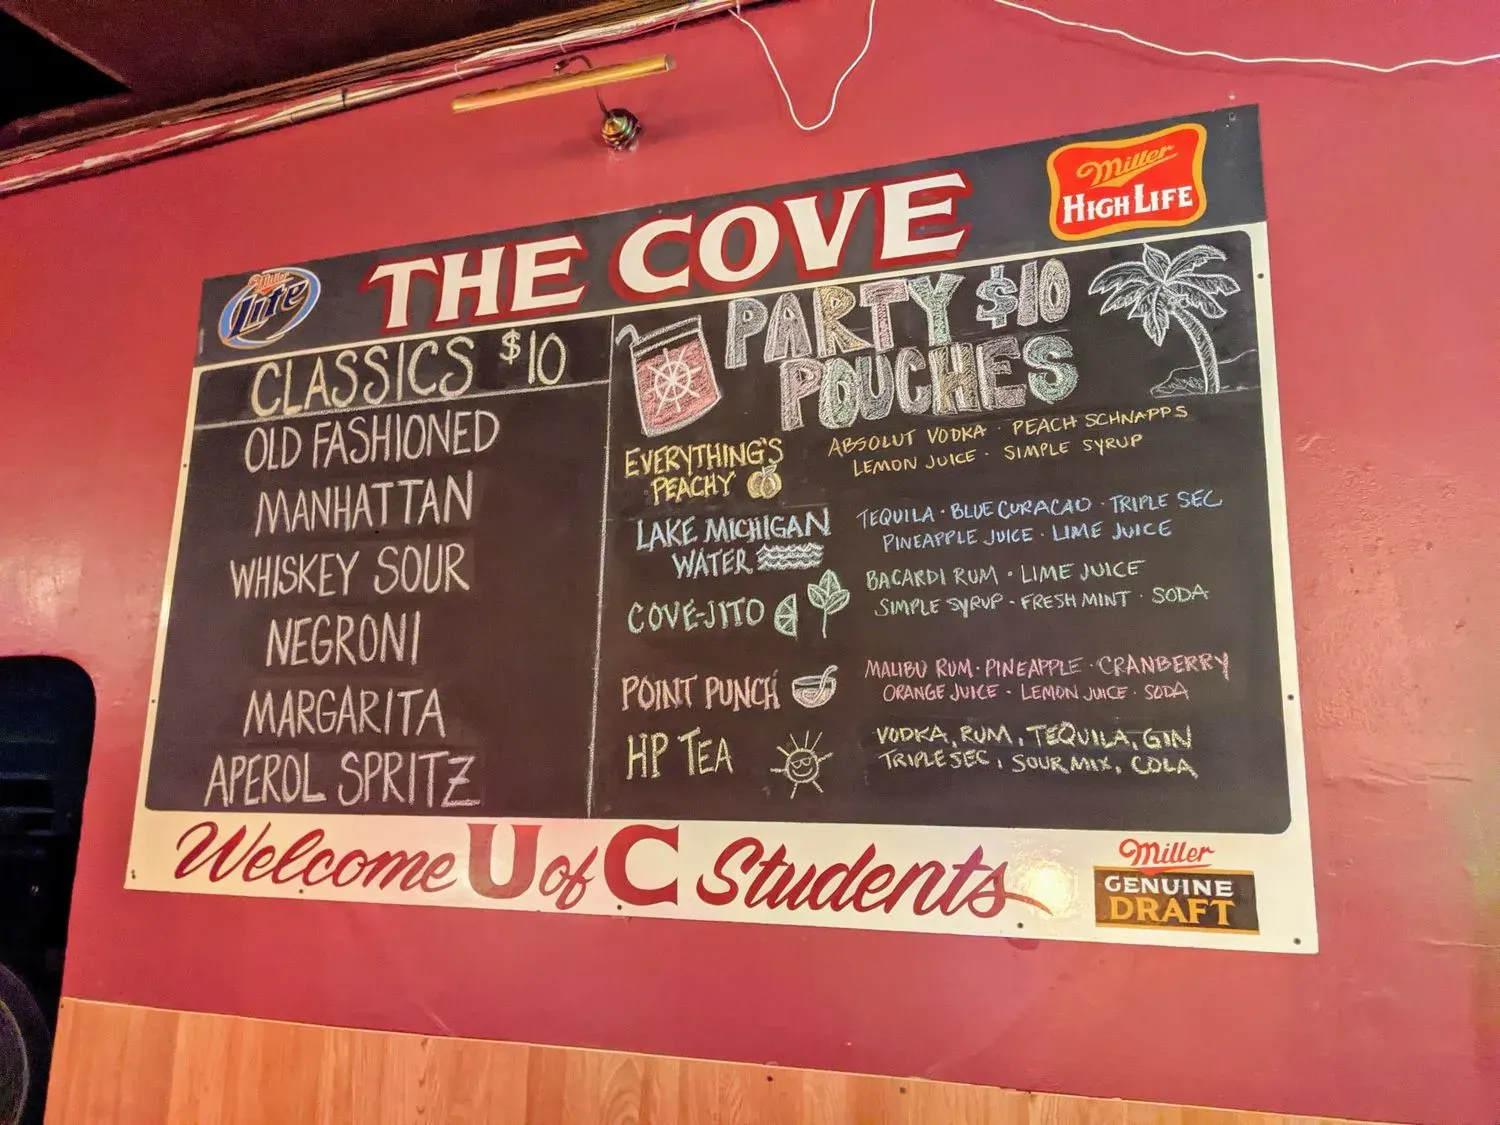 Miller
Lite
THE COVE
Miller
HIGH LIFE
CLASSICS $10
OLD FASHIONED
MANHATTAN
WHISKEY SOUR
NEGRONI
MARGARITA
APEROL SPRITZ
PARTY $10
POUCHES
EVERYTHING'S
PEACHY
ABSOLUT VODKA · PEACH SCHNAPPS
LEMON JUICE · SIMPLE SYRUP
LAKE MICHIGAN
WATER
TEQUILA · BLUE CURACAO · TRIPLE SEC
PINEAPPLE JUICE · LIME JUICE
COVE-JITO
BACARDI RUM · LIME JUICE
SIMPLE SYRUP · FRESH MINT · SODA
POINT PUNCH
MALIBU RUM · PINEAPPLE · CRANBERRY
ORANGE JUICE · LEMON JUICE · SODA
HP TEA
VODKA, RUM, TEQUILA, GIN
TRIPLE SEC, SOUR MIX, COLA
Welcome U of C Students
Miller
GENUINE
DRAFT